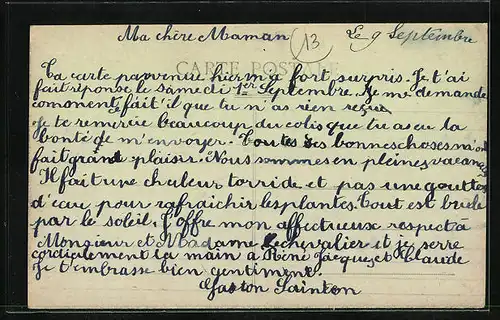 Ma chère Maman (13) Le 9 Septembre
CARTE POSTALE
Ta carte parvenue hier m'a fort surpris. Je t'ai
fait réponse le samedi 1er Septembre. Je me demande
comment ce fait'il que tu n'as rien reçue
Je te remercie beaucoup du colis que tu as eu la
bonté de m'envoyer. Toutes ses bonnes choses m'ont
fait grand plaisir. Nous sommes en pleines vacances
Il fait une chaleur torride et pas une goutte
d'eau pour rafraichir les plantes. Tout est brulé
par le soleil. J'offre mon affectueux respect à
Monsieur et Madame Lechevalier et je serre
cordialement la main à Réné Jacques et Claude
Je t'embrasse bien gentiment.
Gaston Sainton